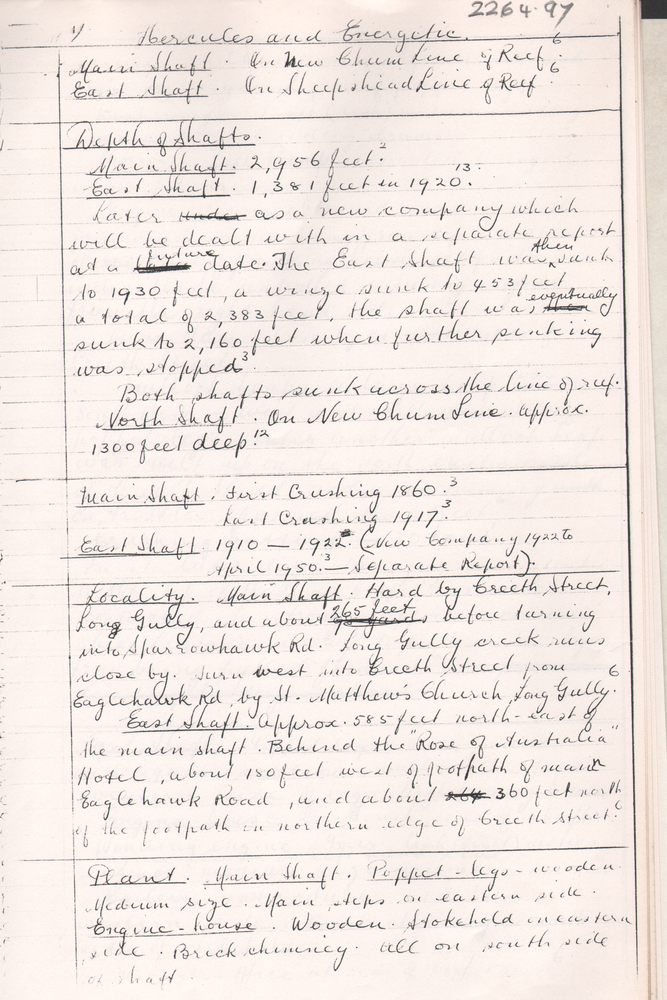 2264.97
1/ Hercules and Energetic.
Main Shaft. On New Chum Line of Reef.6
East Shaft. On Sheepshead Line of Reef.6
Depth of Shafts.
Main Shaft. 2,956 feet.2
East Shaft. 1,381 feet in 1920.13.
Later under as a new company which
will be dealt with in a separate report
at a future date. The East Shaft was then sunk
to 1930 feet, a winze sunk to 453 feet
a total of 2,383 feet, the shaft was eventually
sunk to 2,160 feet when further sinking
was stopped3.
Both shafts sunk across the line of reef.
North Shaft. On New Chum Line. approx.
1300 feet deep.12
Main Shaft. First Crushing 1860.3
Last Crushing 1917.3
East Shaft. 1910 — 1922. (New Company 1922 to
April 1950.3 — Separate Report).
Locality. Main Shaft. Hard by Creeth Street,
Long Gully, and about 265 feet before turning
into Sparrowhawk Rd. Long Gully creek runs
close by. Turn west into Creeth Street from
Eaglehawk Rd, by St. Matthews Church, Long Gully.6
East Shaft. Approx. 585 feet north-east of
the main shaft. Behind the "Rose of Australia"
Hotel, about 180 feet west of footpath of main
Eaglehawk Road, and about 264 360 feet north
of the footpath on northern edge of Creeth Street.6
Plant. Main Shaft. Poppet-legs-wooden.
Medium size. Main steps on eastern side.
Engine-house. Wooden. Stokehold on eastern
side. Brick chimney. all on south side
of shaft.